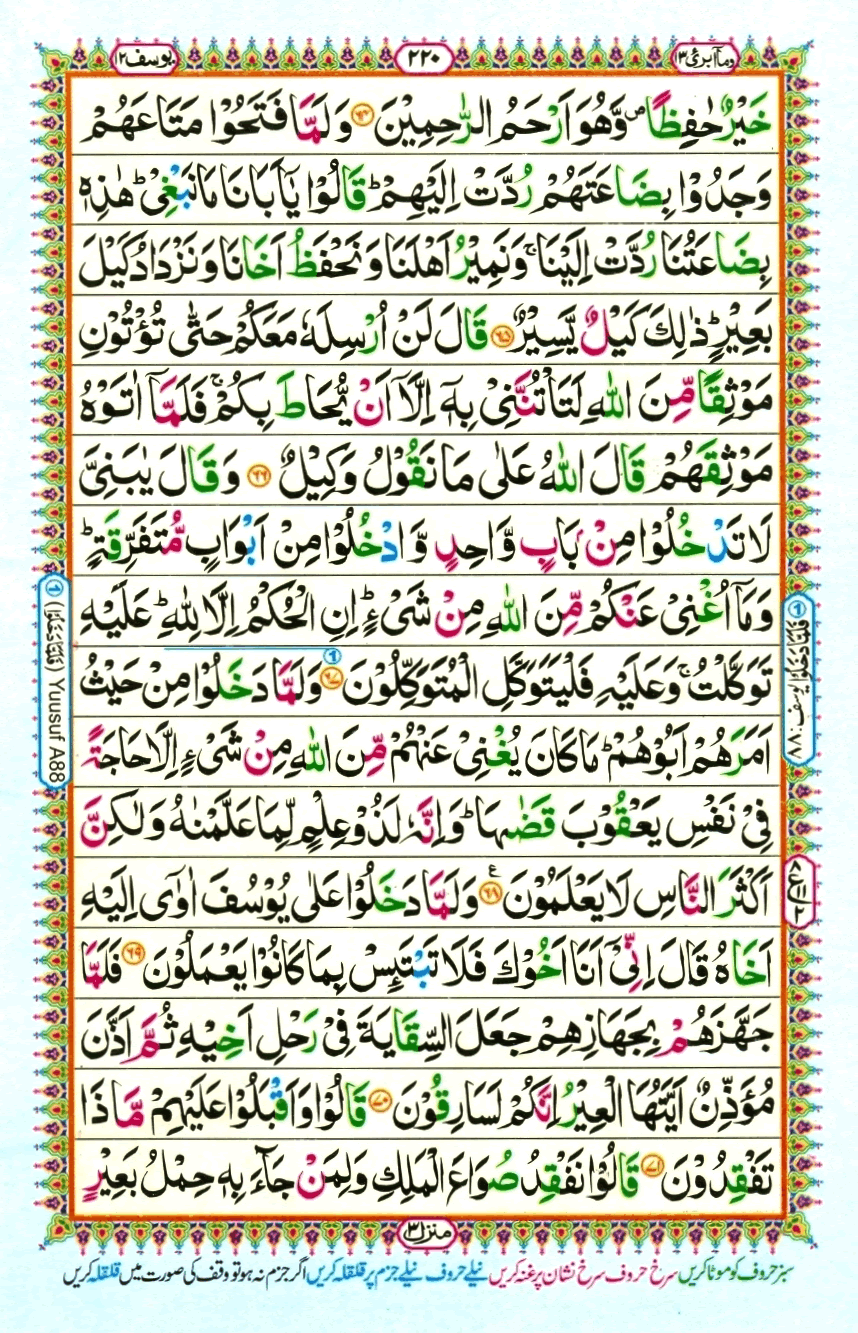 وما ابرئ ١٣
٢٢٠
یوسف ١٢
خَيْرٌ حٰفِظًا ۪ وَّهُوَ اَرْحَمُ الرّٰحِمِيْنَ ٦٤ وَلَمَّا فَتَحُوْا مَتَاعَهُمْ
وَجَدُوْا بِضَاعَتَهُمْ رُدَّتْ اِلَيْهِمْ ؕ قَالُوْا يٰۤاَبَانَا مَا نَبْغِىْ ؕ هٰذِهٖ
بِضَاعَتُنَا رُدَّتْ اِلَيْنَا ۚ وَنَمِيْرُ اَهْلَنَا وَنَحْفَظُ اَخَانَا وَنَزْدَادُ كَيْلَ
بَعِيْرٍ ؕ ذٰلِكَ كَيْلٌ يَّسِيْرٌ ٦٥ قَالَ لَنْ اُرْسِلَهٗ مَعَكُمْ حَتّٰى تُؤْتُوْنِ
مَوْثِقًا مِّنَ اللّٰهِ لَتَاْتُنَّنِىْ بِهٖۤ اِلَّاۤ اَنْ يُّحَاطَ بِكُمْ ۚ فَلَمَّاۤ اٰتَوْهُ
مَوْثِقَهُمْ قَالَ اللّٰهُ عَلٰى مَا نَقُوْلُ وَكِيْلٌ ٦٦ وَقَالَ يٰبَنِىَّ
لَا تَدْخُلُوْا مِنْۢ بَابٍ وَّاحِدٍ وَّادْخُلُوْا مِنْ اَبْوَابٍ مُّتَفَرِّقَةٍ ؕ
وَمَاۤ اُغْنِىْ عَنْكُمْ مِّنَ اللّٰهِ مِنْ شَىْءٍ ؕ اِنِ الْحُكْمُ اِلَّا لِلّٰهِ ؕ عَلَيْهِ
تَوَكَّلْتُ ۚ وَعَلَيْهِ فَلْيَتَوَكَّلِ الْمُتَوَكِّلُوْنَ ٦٧ وَلَمَّا دَخَلُوْا مِنْ حَيْثُ
اَمَرَهُمْ اَبُوْهُمْ ؕ مَا كَانَ يُغْنِىْ عَنْهُمْ مِّنَ اللّٰهِ مِنْ شَىْءٍ اِلَّا حَاجَةً
فِىْ نَفْسِ يَعْقُوْبَ قَضٰٮهَا ؕ وَاِنَّهٗ لَذُوْ عِلْمٍ لِّمَا عَلَّمْنٰهُ وَلٰكِنَّ
اَكْثَرَ النَّاسِ لَا يَعْلَمُوْنَ ٦٨ ع وَلَمَّا دَخَلُوْا عَلٰى يُوْسُفَ اٰوٰٓى اِلَيْهِ
اَخَاهُ قَالَ اِنِّىْۤ اَنَا اَخُوْكَ فَلَا تَبْتَئِسْ بِمَا كَانُوْا يَعْمَلُوْنَ ٦٩ فَلَمَّا
جَهَّزَهُمْ بِجَهَازِهِمْ جَعَلَ السِّقَايَةَ فِىْ رَحْلِ اَخِيْهِ ثُمَّ اَذَّنَ
مُؤَذِّنٌ اَيَّتُهَا الْعِيْرُ اِنَّكُمْ لَسَارِقُوْنَ ٧٠ قَالُوْا وَاَقْبَلُوْا عَلَيْهِمْ مَّاذَا
تَفْقِدُوْنَ ٧١ قَالُوْا نَفْقِدُ صُوَاعَ الْمَلِكِ وَلِمَنْ جَآءَ بِهٖ حِمْلُ بَعِيْرٍ
منزل ٣
(فَلَمَّا دَخَلُوْا) Yuusuf A88
فَلَمَّا دَخَلُوْا یوسف: ٨٨
سبز حروف کو موٹا کریں سرخ حروف سرخ نشان پر غنہ کریں نیلے حروف نیلے جزم پر قلقلہ کریں اگر جزم نہ ہو تو وقف کی صورت میں قلقلہ کریں